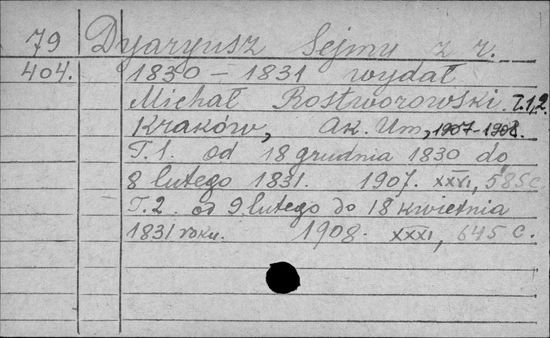 79 Dyaryusz Sejmy z r.
404. 1830 – 1831 wydał
Michał Rostworowski. T.1,2.
Kraków, Ak. Um, 1907-1908.
T.1. od 18 grudnia 1830 do
8 lutego 1831. 1907. XXVI, 585 c
T.2. od 9 lutego do 18 kwietnia
1831 roku. 1908. XXXI, 645 c.